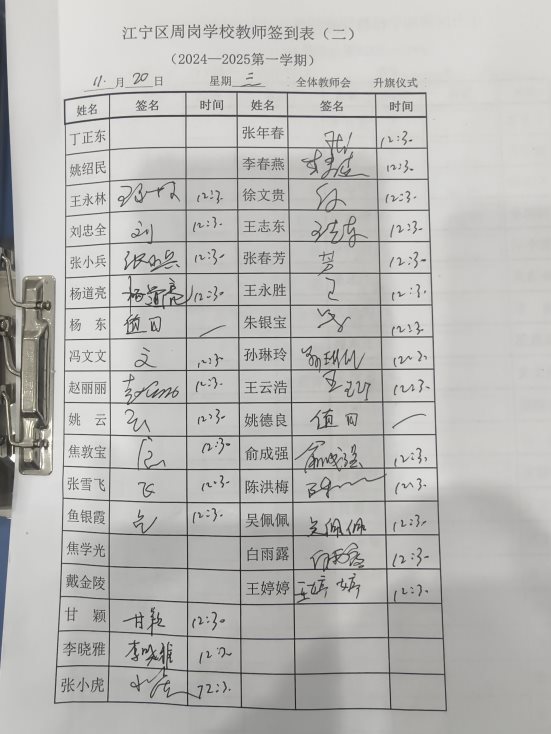 江宁区周岗学校教师签到表（二）
（2024—2025第一学期）
11月20日 星期三 全体教师会 升旗仪式
姓名 签名 时间 姓名 签名 时间
丁正东 张年春 12:30
姚绍民 李春燕 李春燕 12:30
王永林 12:30 徐文贵 12:30
刘忠全 刘 12:30 王志东 王志东 12:30
张小兵 张小兵 12:30 张春芳 芳 12:30
杨道亮 杨道亮 12:30 王永胜 王 12:30
杨 东 值日 朱银宝 12:30
冯文文 文 12:30 孙琳玲 12:30
赵丽丽 12:30 王云浩 12:30
姚 云 云 12:30 姚德良 值日
焦敦宝 12:30 俞成强 俞成强 12:30
张雪飞 飞 12:30 陈洪梅 12:30
鱼银霞 12:30 吴佩佩 吴佩佩 12:30
焦学光 白雨露 白雨露 12:30
戴金陵 王婷婷 王婷婷 12:30
甘 颖 甘颖 12:30
李晓雅 李晓雅 12:30
张小虎 12:30